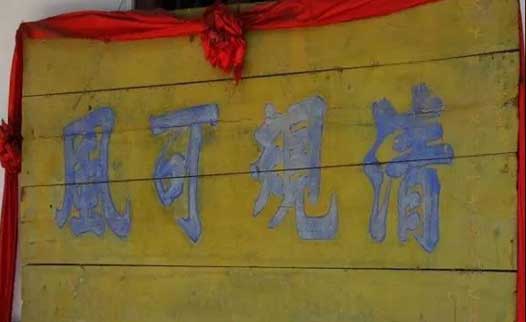 清規可風